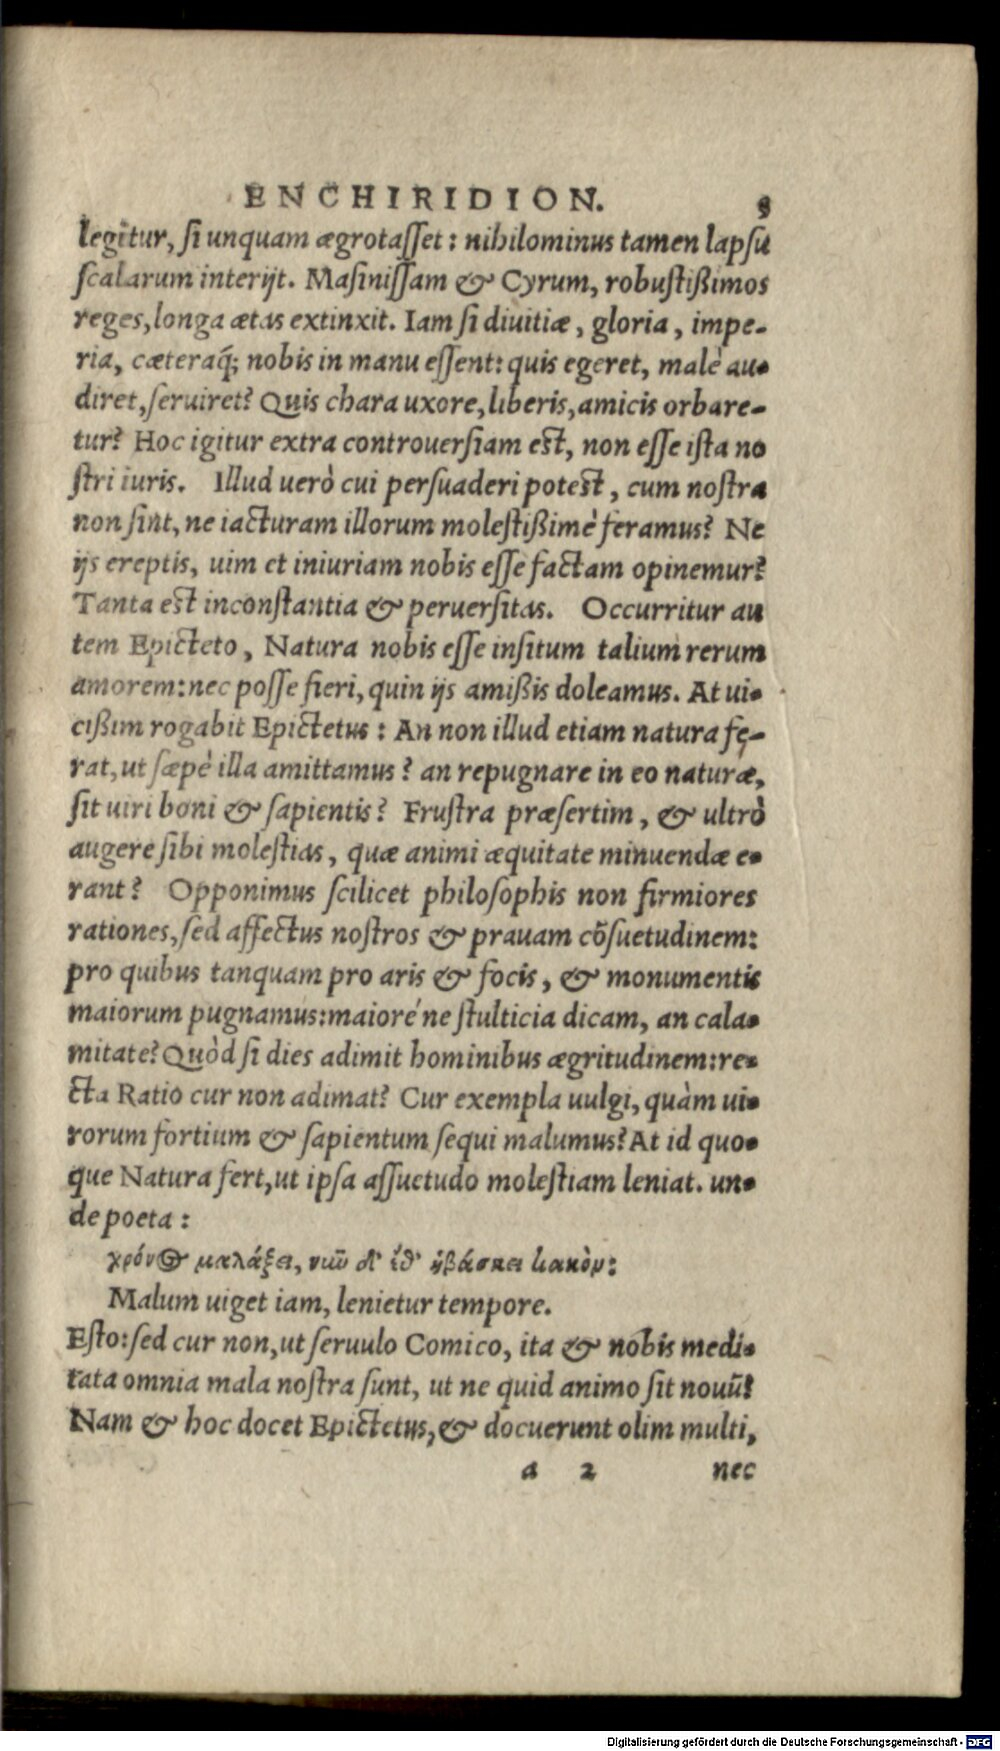 ENCHIRIDION.
legitur, ſi unquam ægrotaſſet: nihilominus tamen lapſu
ſcalarum interijt. Maſiniſſam & Cyrum, robuſtißimos
reges, longa ætas extinxit. Iam ſi diuitiæ, gloria, impe-
ria, cæteraq́; nobis in manu eſſent: quis egeret, malè au-
diret, ſeruiret? Quis chara uxore, liberis, amicis orbare-
tur? Hoc igitur extra controuerſiam eſt, non eſſe iſta no
ſtri iuris. Illud uerò cui perſuaderi poteſt, cum noſtra
non ſint, ne iacturam illorum moleſtißimè feramus? Ne
ijs ereptis, uim et iniuriam nobis eſſe factam opinemur?
Tanta eſt inconſtantia & peruerſitas. Occurritur au
tem Epicteto, Natura nobis eſſe inſitum talium rerum
amorem: nec poſſe fieri, quin ijs amißis doleamus. At ui-
cißim rogabit Epictetus: An non illud etiam natura fe-
rat, ut ſæpè illa amittamus? an repugnare in eo naturæ,
ſit uiri boni & ſapientis? Fruſtra præſertim, & ultrò
augere ſibi moleſtias, quæ animi æquitate minuendæ e-
rant? Opponimus ſcilicet philoſophis non firmiores
rationes, ſed affectus noſtros & prauam cõſuetudinem:
pro quibus tanquam pro aris & focis, & monumentis
maiorum pugnamus: maioré ne ſtulticia dicam, an cala-
mitate? Quòd ſi dies adimit hominibus ægritudinem: re-
cta Ratio cur non adimat? Cur exempla uulgi, quàm ui-
rorum fortium & ſapientum ſequi malumus? At id quo-
que Natura fert, ut ipſa aſſuetudo moleſtiam leniat. un-
de poeta:
χρόνος μαλάξει, νιῦ δ' ἔθ' ἡβάσκει κακὸν:
Malum uiget iam, lenietur tempore.
Eſto: ſed cur non, ut ſeruulo Comico, ita & nobis medi-
tata omnia mala noſtra ſunt, ut ne quid animo ſit nouũ?
Nam & hoc docet Epictetus, & docuerunt olim multi,
a 2 nec
Digitalisierung gefördert durch die Deutsche Forschungsgemeinschaft - DFG